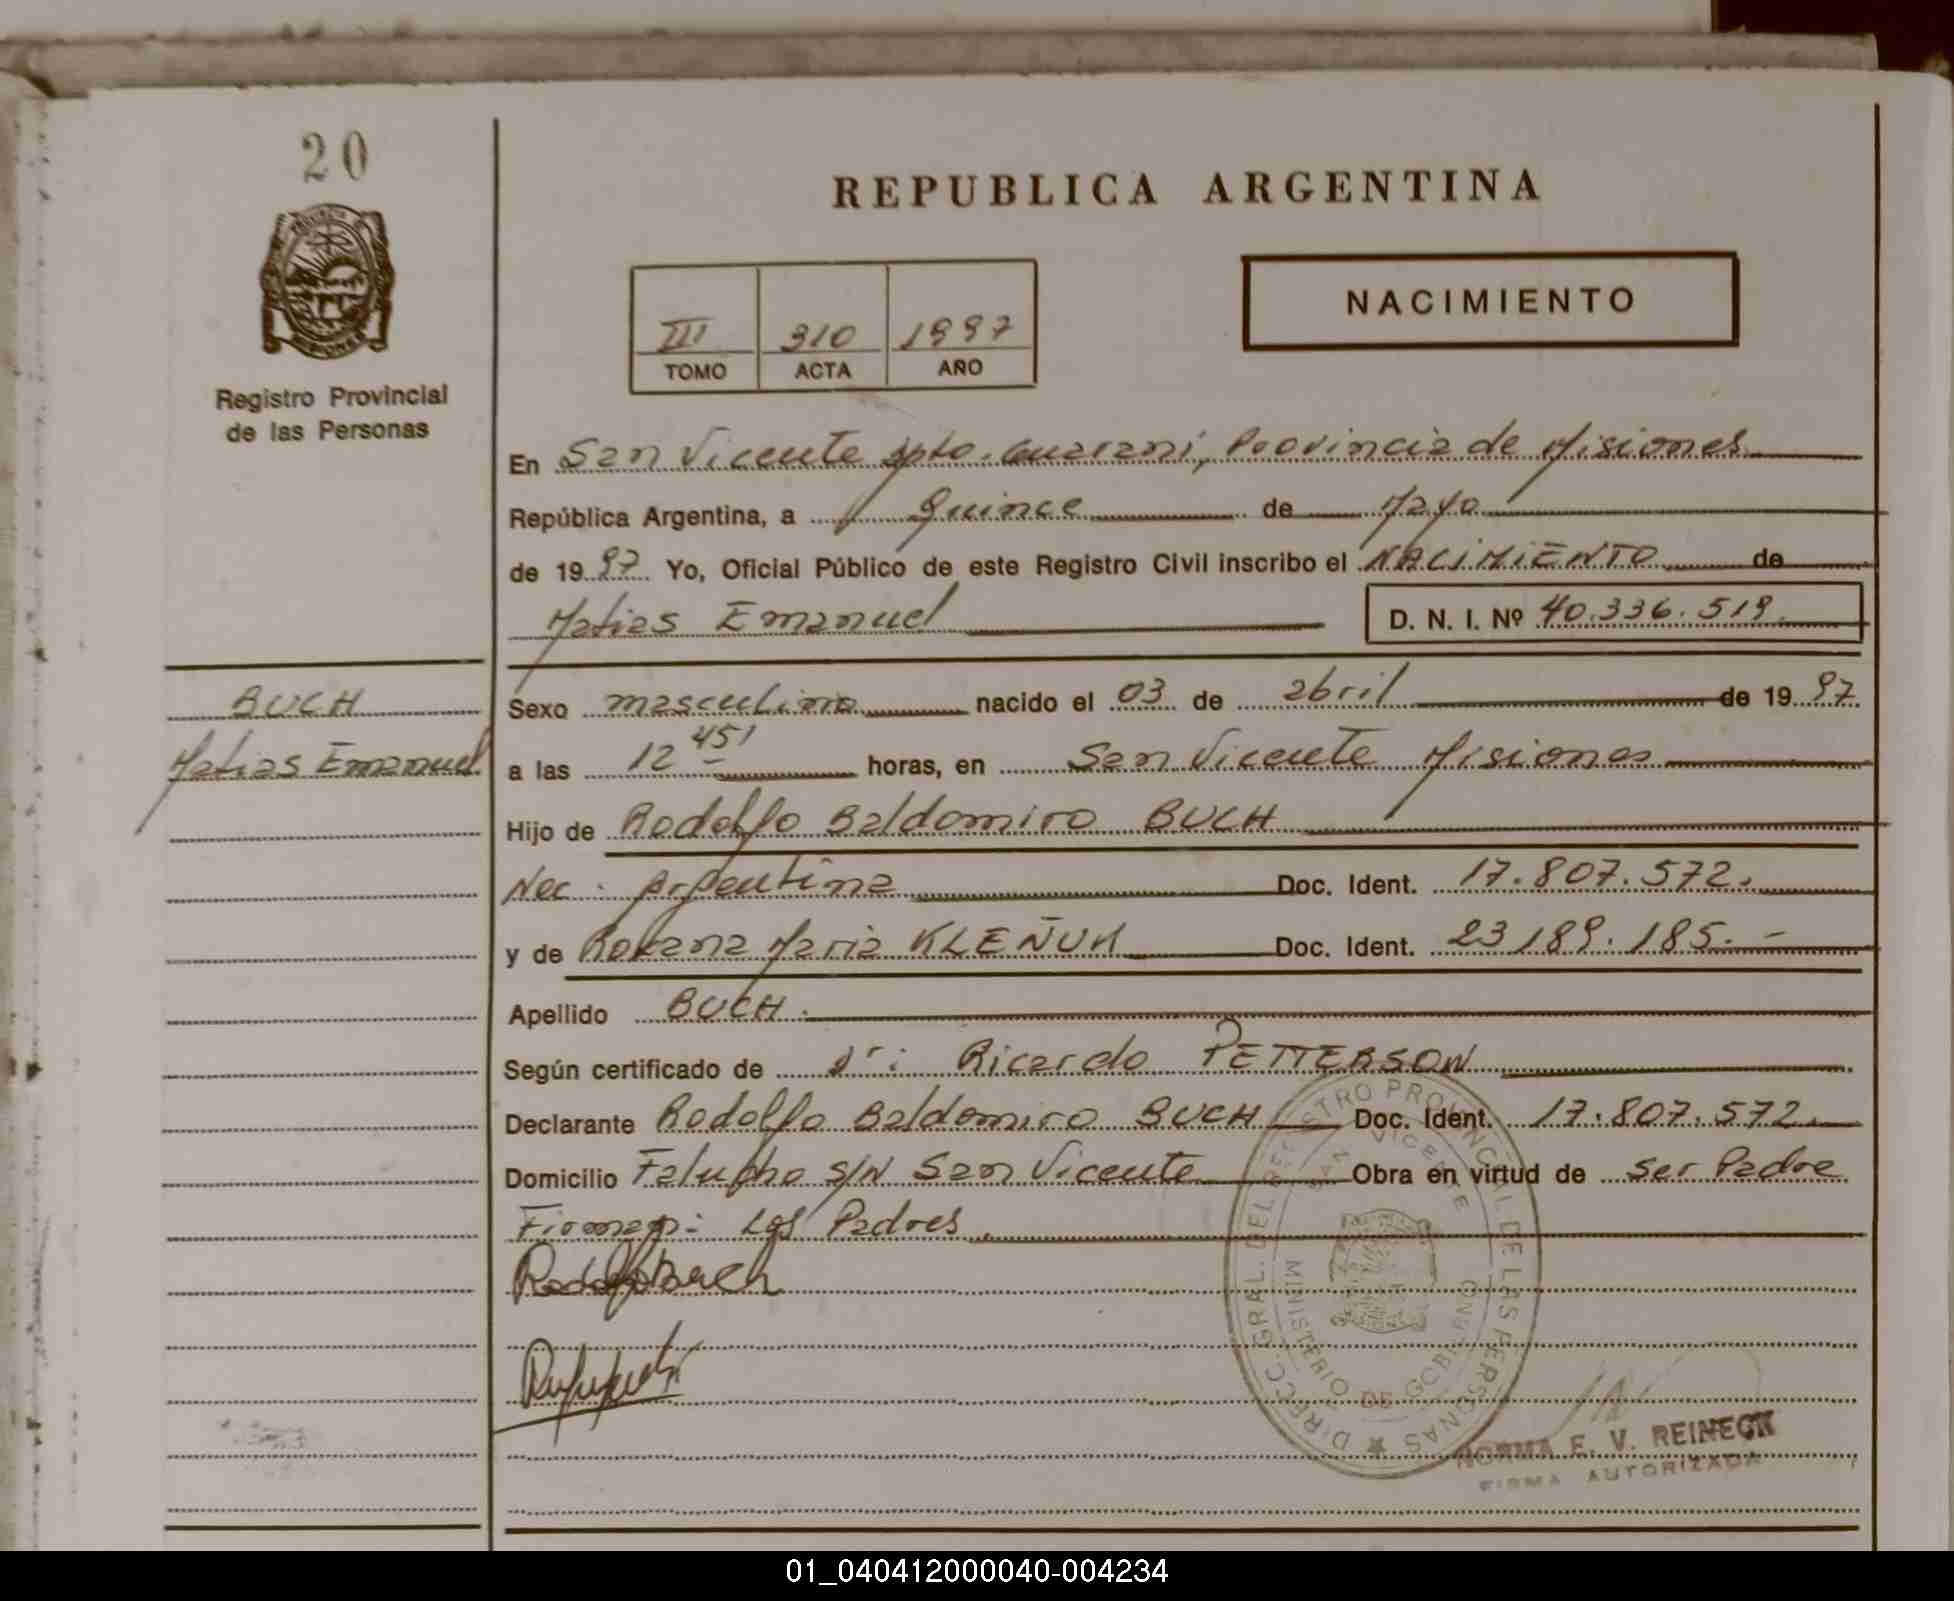 20
REPUBLICA ARGENTINA
NACIMIENTO
III 310 1997
TOMO ACTA AÑO
Registro Provincial
de las Personas
En San Vicente dpto. Guarani, Provincia de Misiones
República Argentina, a Quince de Mayo
de 1997 Yo, Oficial Público de este Registro Civil inscribo el NACIMIENTO de
Matias Emanuel D. N. I. Nº 40.336.519.
BUCH
Matias Emanuel
Sexo masculino nacido el 03 de abril de 1997
a las 12 45' horas, en San Vicente Misiones
Hijo de Rodolfo Baldomiro BUCH
Nac: Argentina Doc. Ident. 17.807.572.
y de Roxana Maria KLEÑUK Doc. Ident. 23.189.185.-
Apellido BUCH.
Según certificado de dr: Ricardo PETTERSON
Declarante Rodolfo Baldomiro BUCH Doc. Ident. 17.807.572.
Domicilio Falucho S/N San Vicente Obra en virtud de ser Padre
Firman: Los Padres.
Rodolfo Buch
DIRECC. GRAL. DEL REGISTRO PROVINCIAL DE LAS PERSONAS
SAN VICENTE
MINISTERIO DE GOBIERNO
NORMA E. V. REINECK
FIRMA AUTORIZADA
01_040412000040-004234